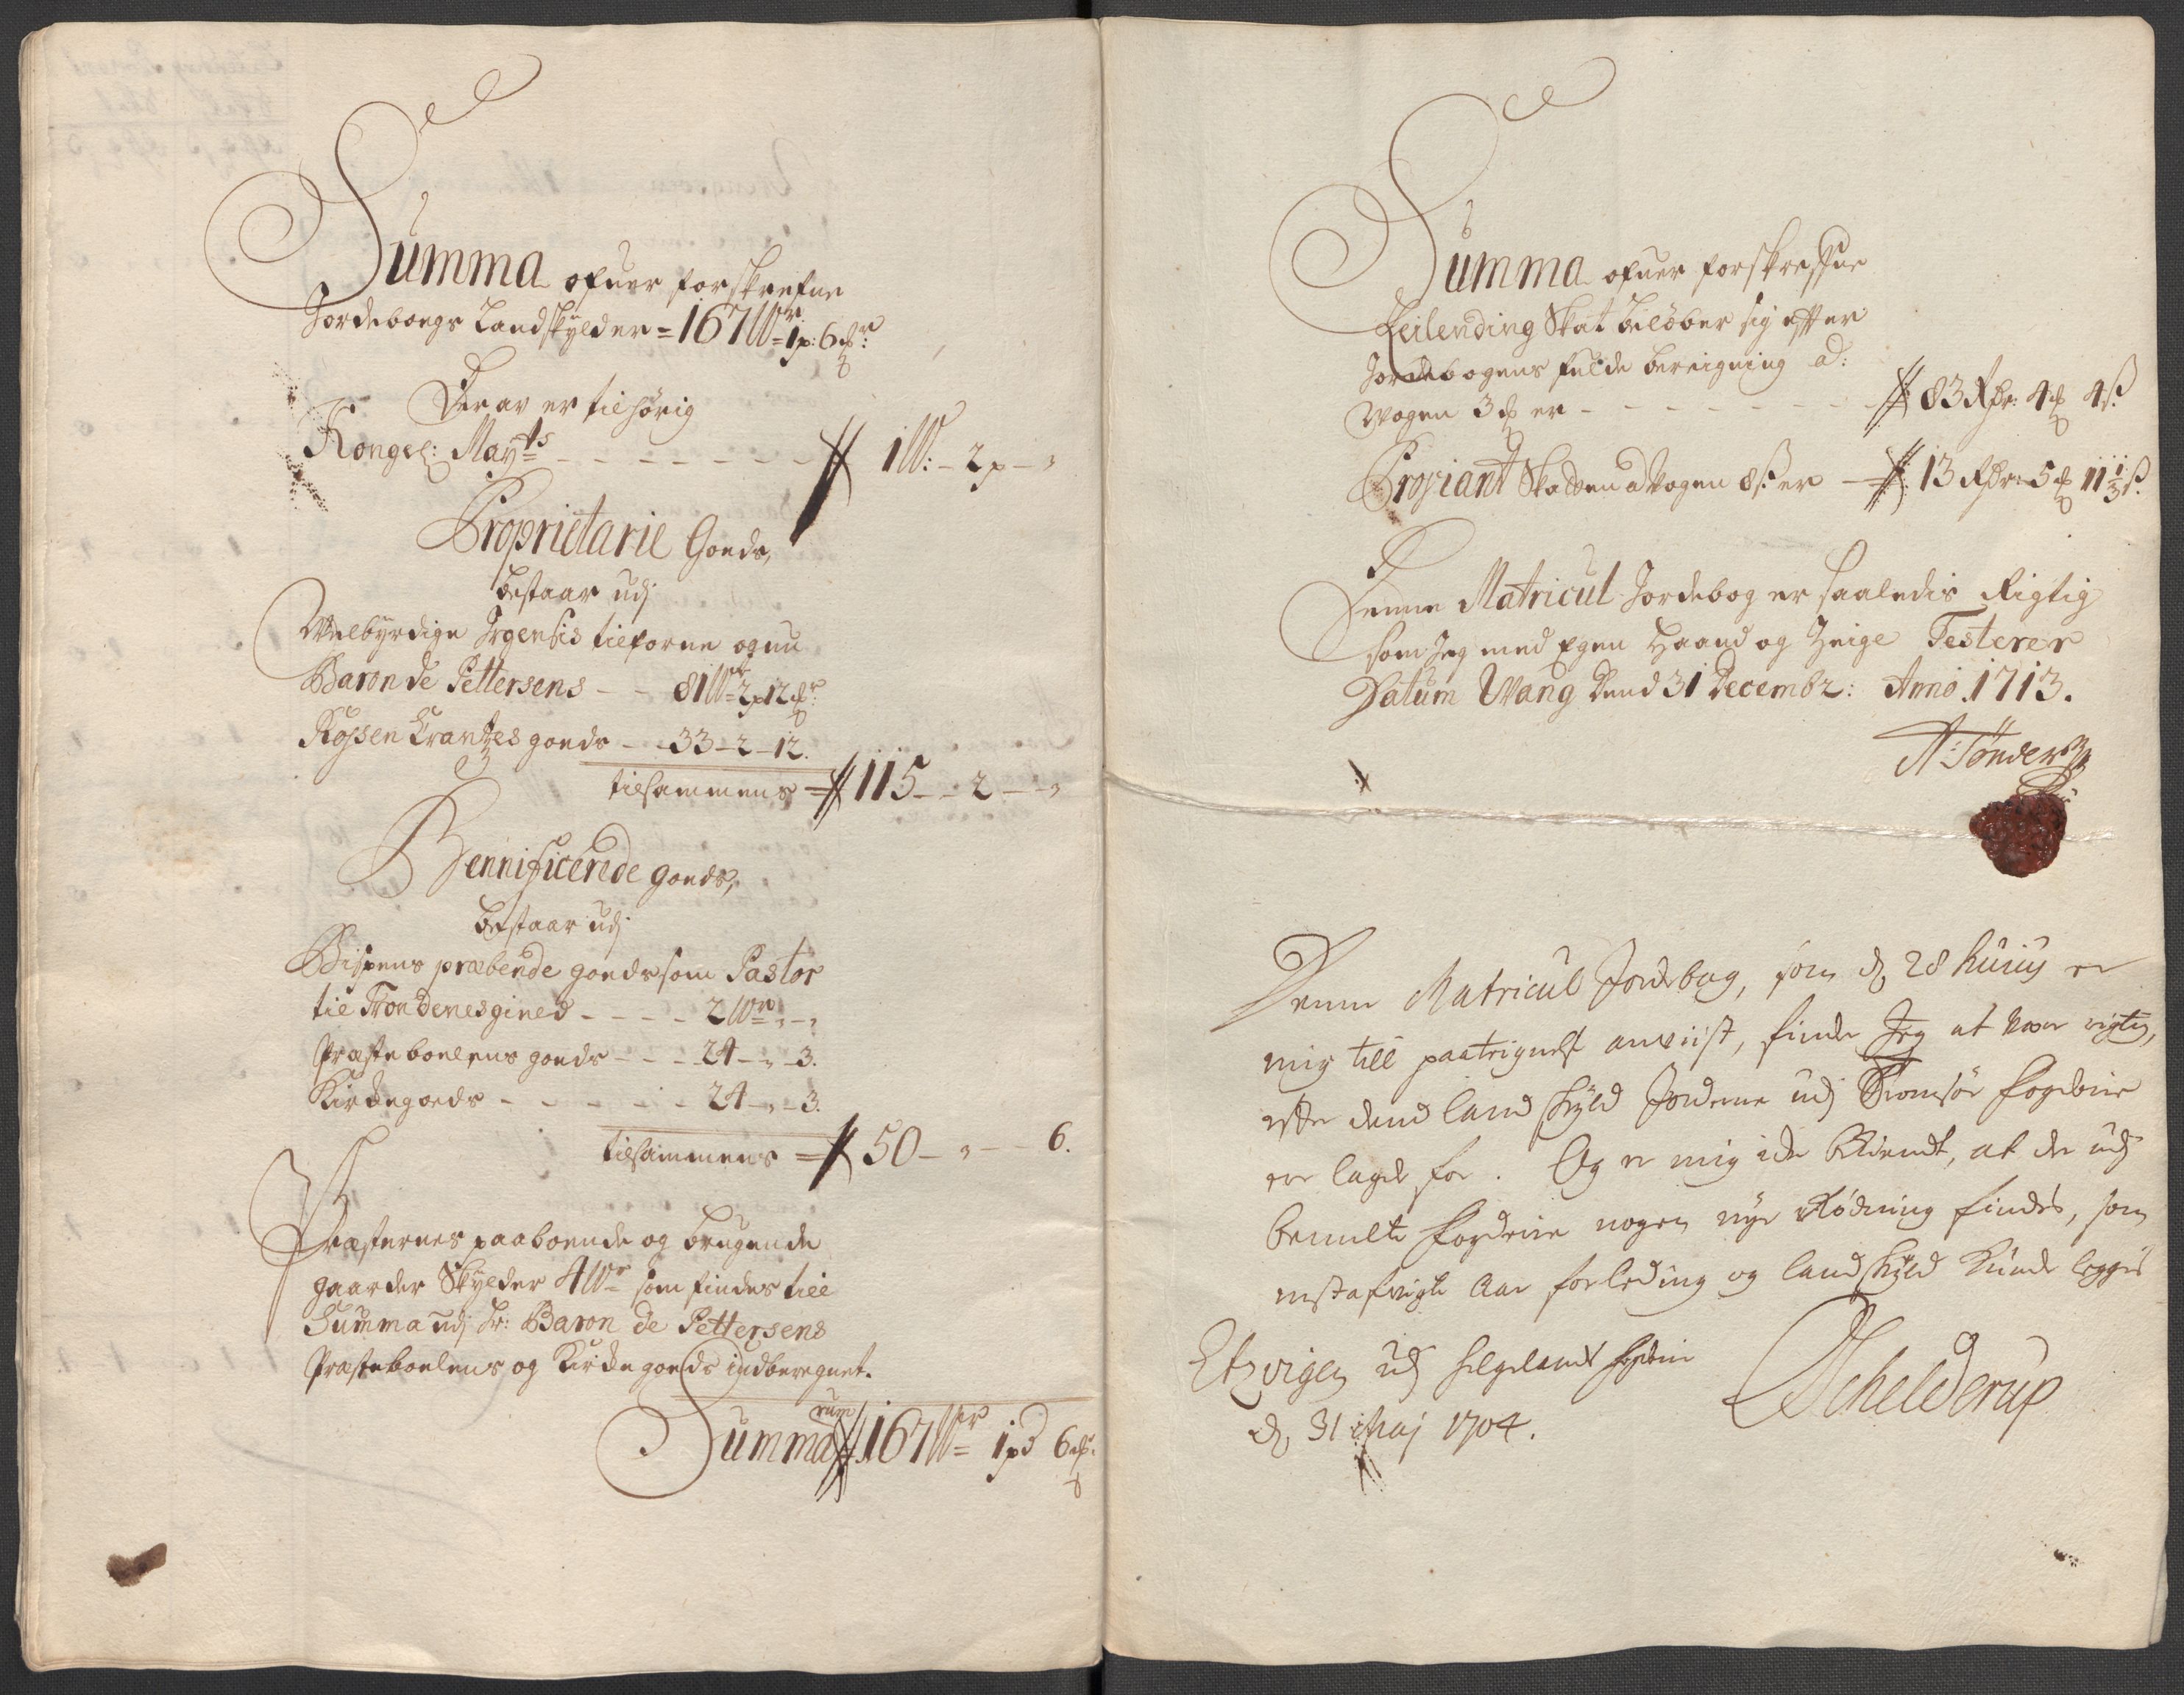 Summa ofuer forskrefne
Jordeboegs Landskylder = 167 W̲r: 1 p: 6 ℔r:
Derav er tilhørig
Kongel: Mayts - - - - - - - 1 W: - 2 p - „
Proprietarie Goeds,
bestaar udj
Welbyrdige Irgensis tilforne og nu
Baron de Pettersens - - 81 Wr 2 p 12 ℔r:
Rossen Krantzes goeds - - 33 - 2 - 12.
tilsammens = 115 - - 2 - - „
Bennificerede goeds,
bestaar udj
Bispens præbende goeds som Pastor
til Trondenes gined - - - - 2 Wr „ - „
Præsteboelens goeds - - - 24 - „ - 3.
Kirckegoeds - - - - - - 24 - „ - 3.
tilsammens = 50 - „ - - 6.
Præsternes paaboende og brugende
gaarder Skylder 4 Wr som findes till
Summa udj Hr: Baron de Pettersens
Præsteboelens og Kircke goeds indberegnet.
Summa rum 167 Wr 1 pd 6 ℔r.
Summa ofuer forskreffne
Leilending Skat beløber sig effter
Jordebogens fulde beregning ad:
Wogen 3 ℔ er - - - - - - - - 83 Rdr: 4 ℔ 4 ß.
Proviant Skatten a Wogen 8 ß er - 13 Rdr: 5 ℔ 11 1/3 ß.
Denne Matricul Jordebog er saaledis Rigtig
som Jeg med Egen Haand og Zeigle Testerer
Datum Wang Dend 31 Decembr: Anno 1713.
A: Tønder
Denne Matricul Jordebog, som d. 28 huius er
mig till paategnelse anviist, finder Jeg at være rigtig,
efter dend landskyld Jorderne udj Tromsøe fogderie
ere lagde for. Og er mig icke bekiendt, at der udj
bemelte fogderie nogen nye Rødning findes, som
med afvigte Aar forleding og landskyld kunde legges
Etzvigen udj Helgelands fogderie
d. 31 Maj 1704. Schelderup